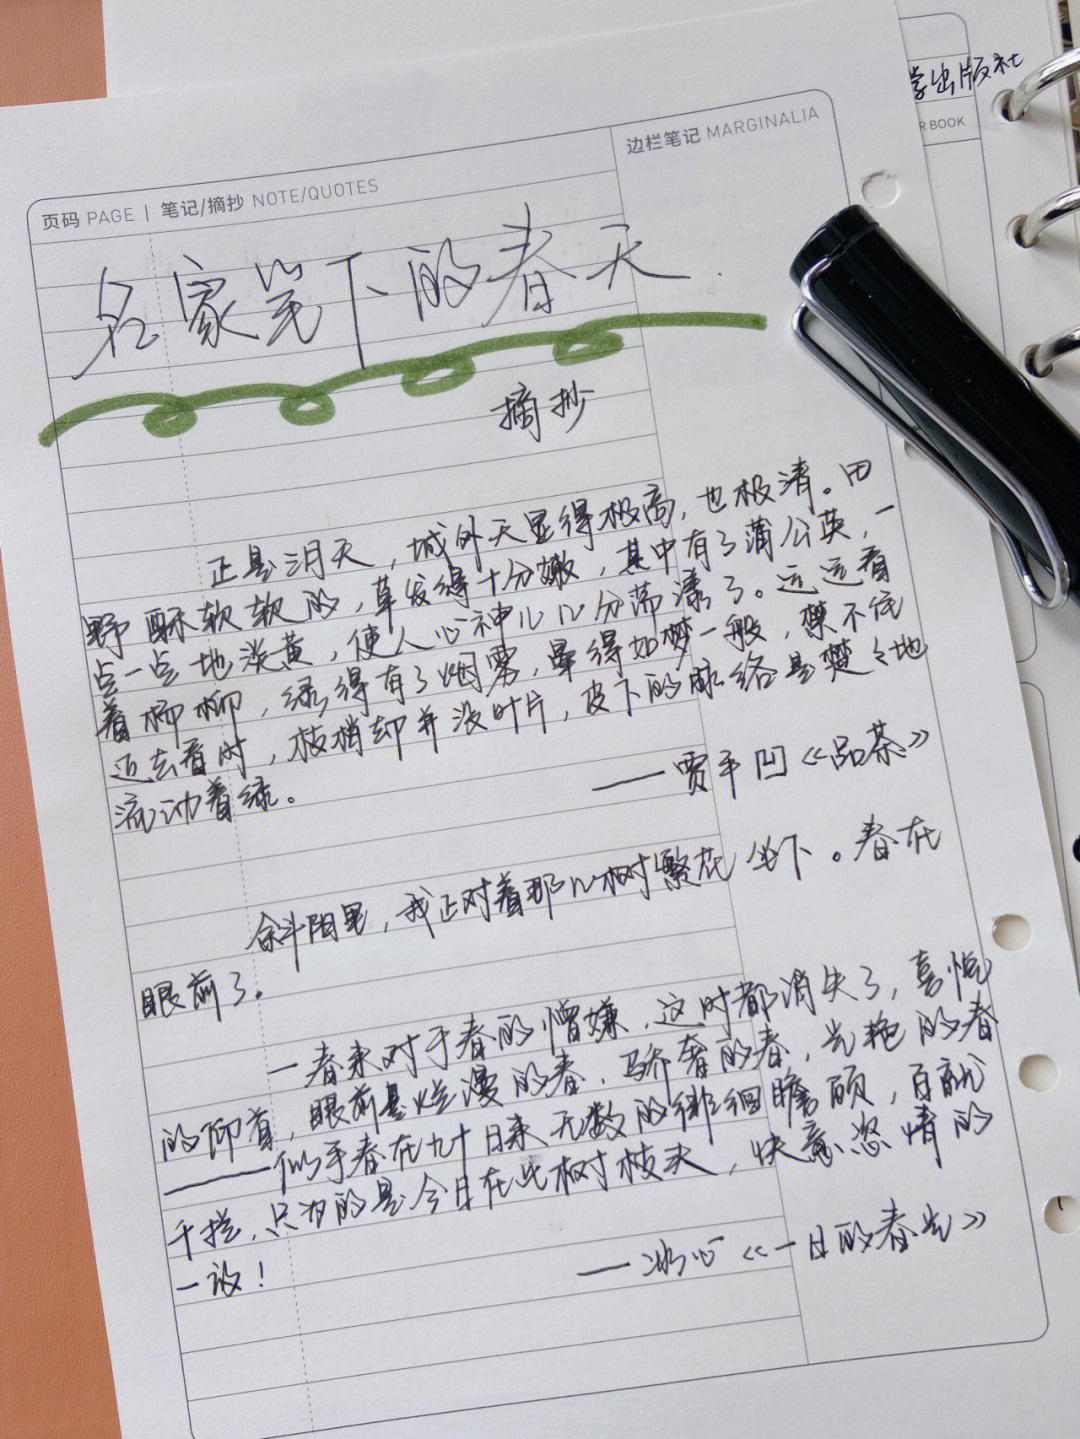 学出版社
R BOOK
边栏笔记 MARGINALIA
页码 PAGE | 笔记/摘抄 NOTE/QUOTES
名家笔下的春天
摘抄
正是三月天，城外天显得极高，也极清。田
野酥软软的，草发得十分嫩，其中有了蒲公英，一
点一点地淡黄，使人心神儿几分荡漾了。远远看
着杨柳，绿得有了烟雾，晕得如梦一般，禁不住
近去看时，枝梢却并没叶片，皮下的脉络是楚々地
流动着绿。
——贾平凹《品茶》
斜阳里，我正对着那几树繁花坐下。春在
眼前了。
一春来对于春的憎嫌，这时都消失了，喜悦
的仰首，眼前是烂漫的春，骄奢的春，光艳的春
——似乎春在九十日来无数的徘徊瞻顾，百就
千拦，只为的是今日在此树枝头，快意恣情的
一放！
——冰心《一日的春光》